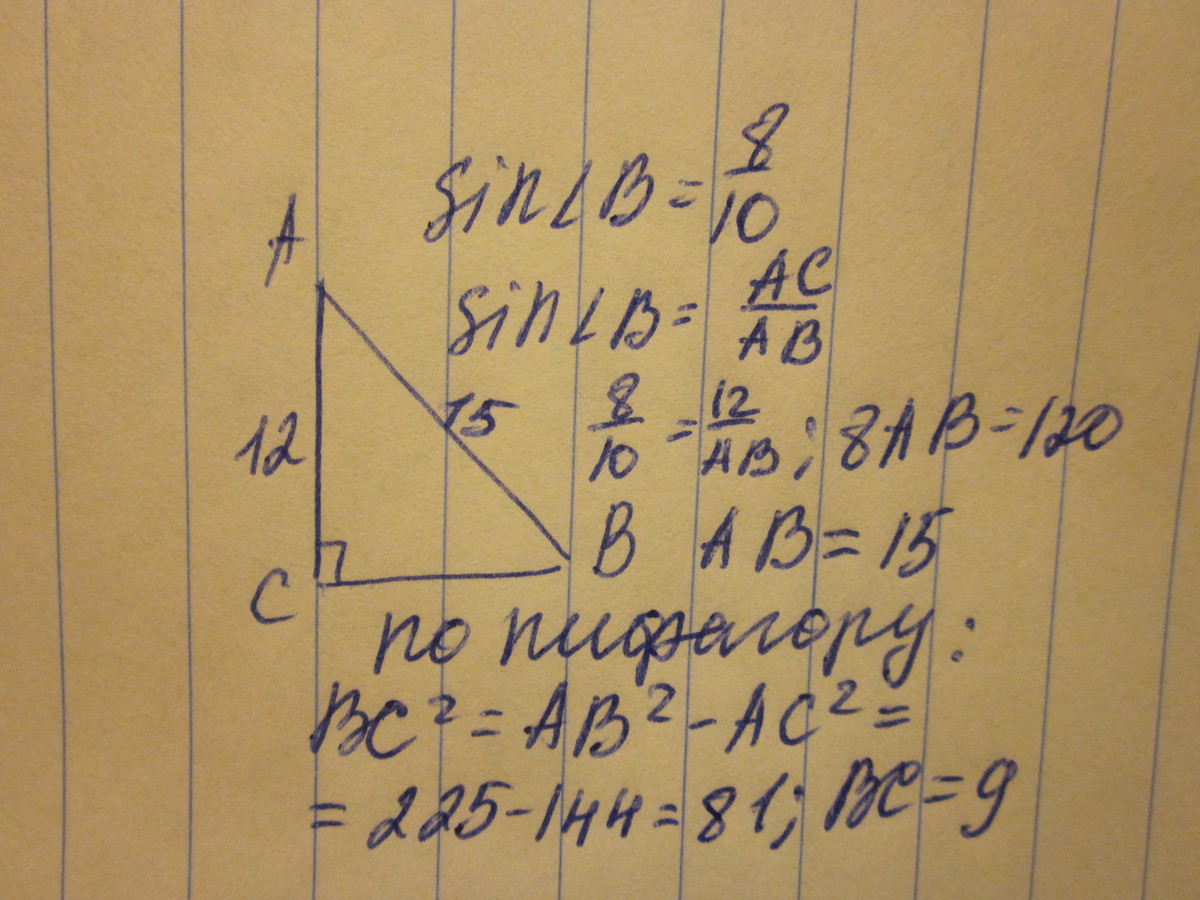 sin∠B = 8/10
A
sin∠B = AC/AB
12
15
8/10 = 12/AB ; 8AB = 120
C
B
AB = 15
по пифагору:
BC² = AB² - AC² =
= 225 - 144 = 81; BC = 9